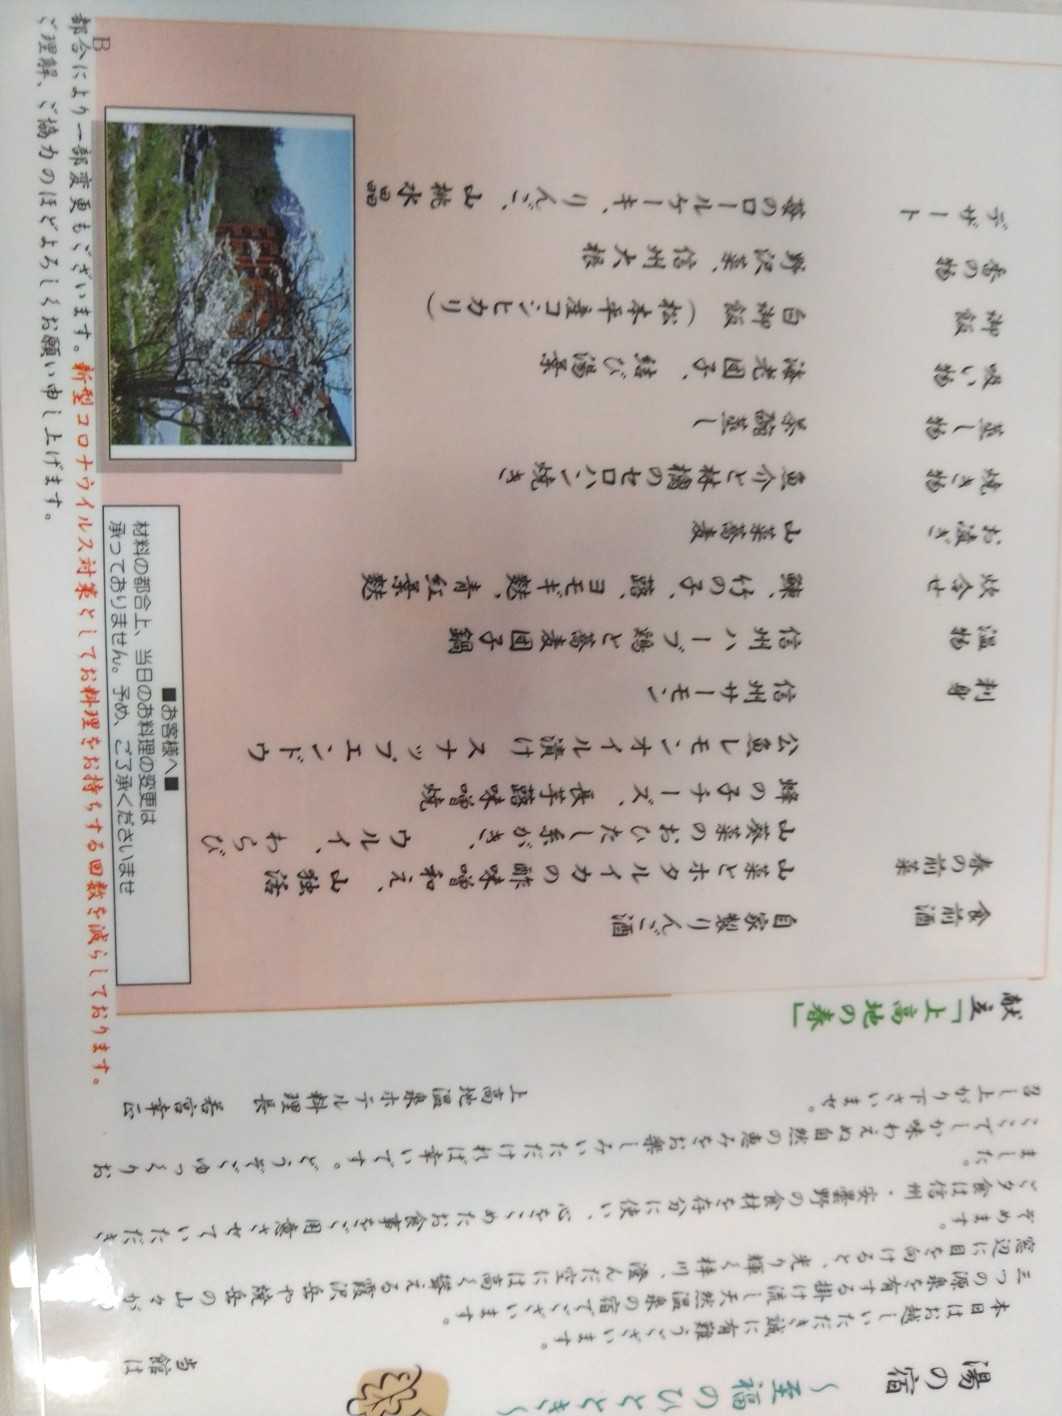 湯の宿
～至福のひととき～
本日はお越しいただき誠に有難うございます。
当館は
三つの源泉を有する掛け流し天然温泉の宿でございます。
窓辺に目を向けると、光り輝く梓川、澄んだ空には高く聳える霞沢岳や焼岳の山々が
ぞめます。
ご夕食は信州・安曇野の食材を存分に使い、心をこめたお食事をご用意させていただき
ました。
ここでしか味わえぬ自然の恵みをお楽しみいただければ幸いです。どうぞごゆっくりお
召し上がり下さいませ。
上高地温泉ホテル料理長 若宮幸
献立「上高地の春」
食前酒 自家製りんご酒
春の前菜 山菜とホタルイカの酢味噌和え、山独活
山葵菜のおひたし糸がき、ウルイ、わらび
蜂の子チーズ、長芋蕗味噌焼
公魚レモンオイル漬け スナップエンドウ
刺身 信州サーモン
温物 信州ハーブ鶏と蕎麦団子鍋
炊合せ 竹の子、蕗、ヨモギ麩、青紅葉麩
お凌ぎ 山菜蕎麦
焼き物 魚介と林檎のセロハン焼き
蒸し物 茶碗蒸し
吸い物 海老団子、結び湯葉
御飯 白御飯(松本平産コシヒカリ)
香の物 野沢菜、信州大根
デザート 苺のロールケーキ、りんご、山桃水晶
■お客様へ■
材料の都合上、当日のお料理の変更は
承っておりません。予め、ご了承くださいませ
B
都合により一部変更もございます。新型コロナウイルス対策としてお料理をお持ちする回数を減らしております。
ご理解、ご協力のほどよろしくお願い申し上げます。